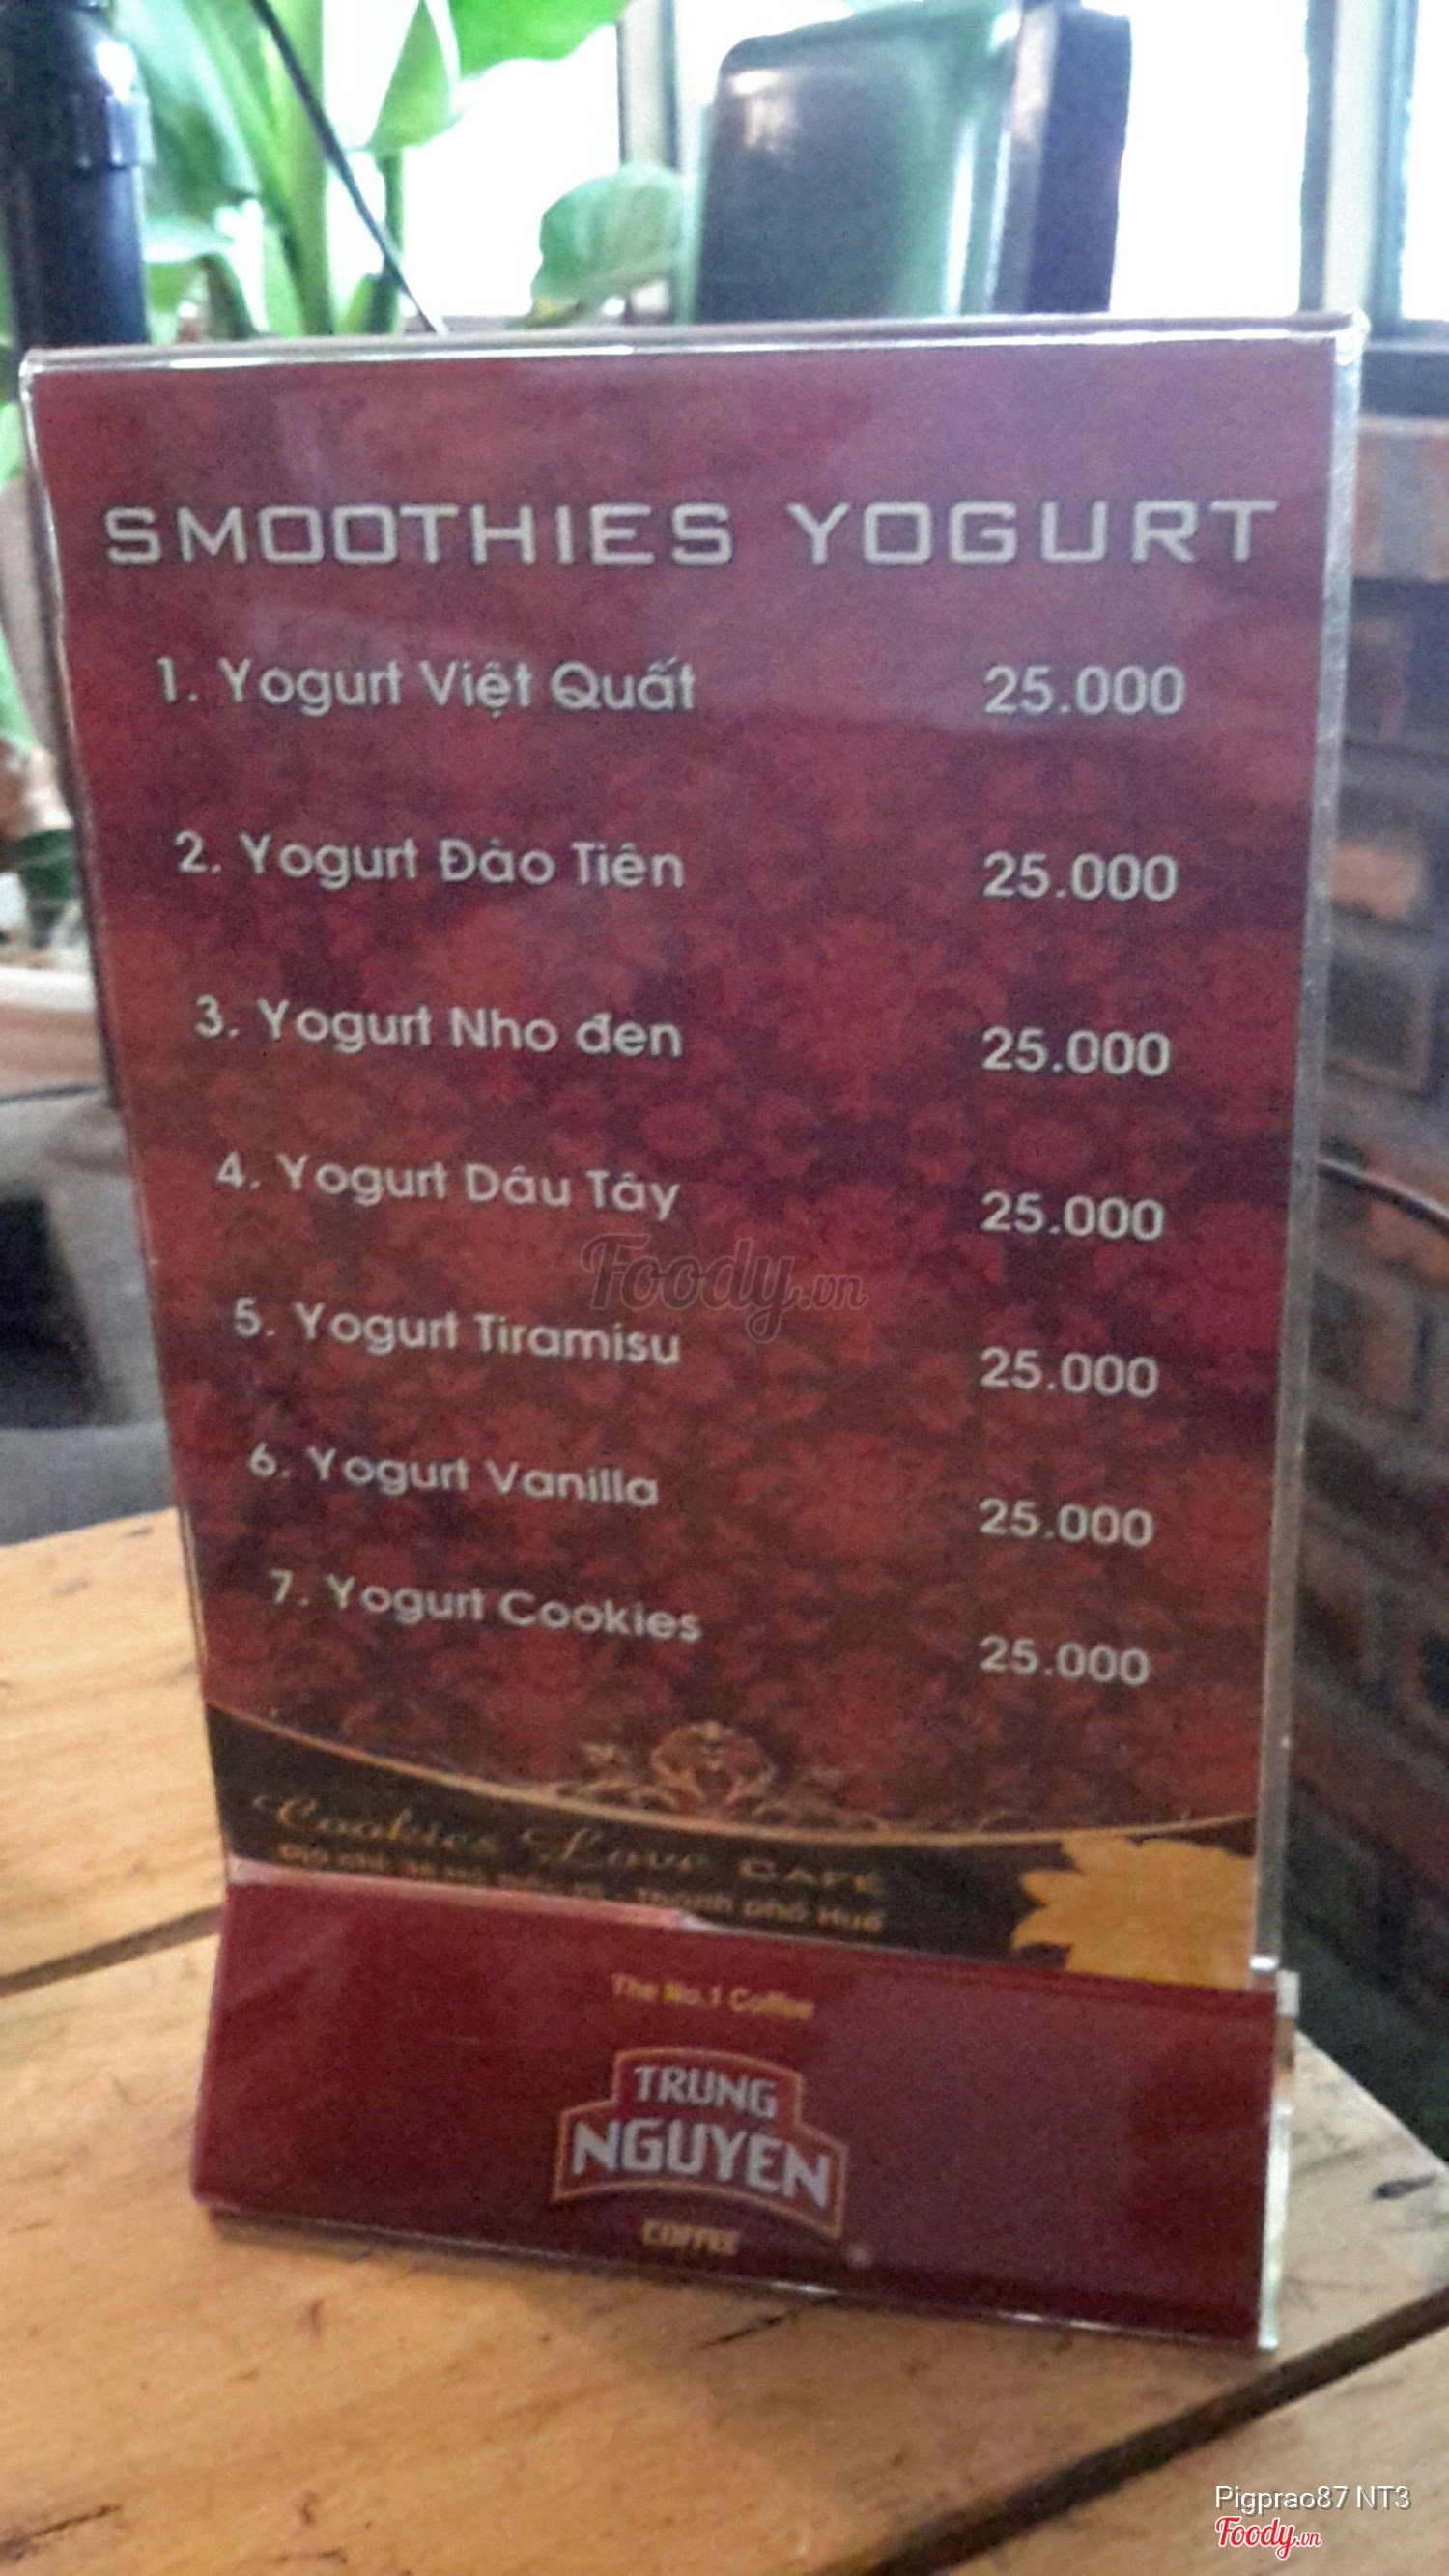 SMOOTHIES YOGURT
1. Yogurt Việt Quất 25.000
2. Yogurt Đào Tiên 25.000
3. Yogurt Nho đen 25.000
4. Yogurt Dâu Tây 25.000
Foody.vn
5. Yogurt Tiramisu 25.000
6. Yogurt Vanilla 25.000
7. Yogurt Cookies 25.000
Cookies Love CAFE
Thành phố Huế
The No.1 Coffee
TRUNG
NGUYÊN
COFFEE
Pigprao87 NT3
Foody.vn